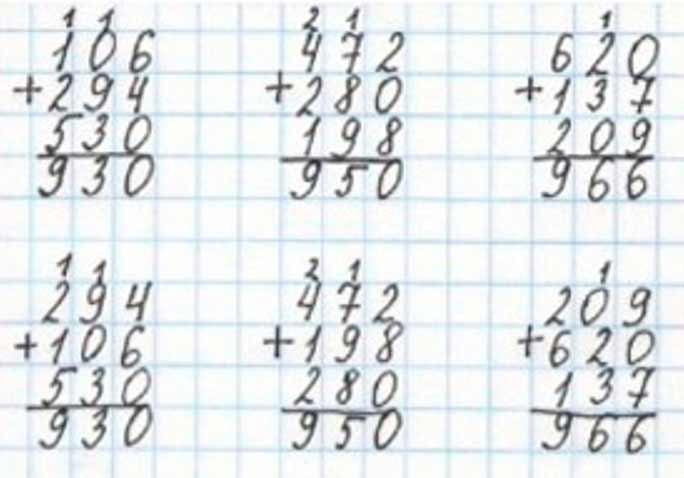 1 1
106
+294
530
930
2 1
472
+280
198
950
1
620
+137
209
966
1 1
294
+106
530
930
2 1
472
+198
280
950
1
209
+620
137
966